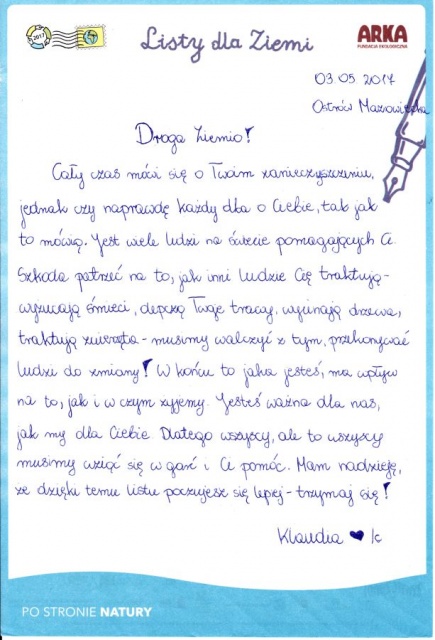 2017
Listy dla Ziemi
ARKA
FUNDACJA EKOLOGICZNA
03 05 2017
Ostrów Mazowiecka
Droga Ziemio!
Cały czas mówi się o Twoim zanieczyszczeniu,
jednak czy naprawdę każdy dba o Ciebie, tak jak
to mówią. Jest wiele ludzi na świecie pomagających Ci.
Szkoda patrzeć na to, jak inni ludzie Cię traktują-
wyrzucają śmieci, depczą Twoje trawy, wycinają drzewa,
traktują zwierzęta - musimy walczyć z tym, przekonywać
ludzi do zmiany! W końcu to jaka jesteś, ma wpływ
na to, jak i w czym żyjemy. Jesteś ważna dla nas,
jak my dla Ciebie. Dlatego wszyscy, ale to wszyscy
musimy wziąć się w garść i Ci pomóc. Mam nadzieję,
że dzięki temu listu poczujesz się lepiej - trzymaj się!
Klaudia ♥ K
PO STRONIE NATURY